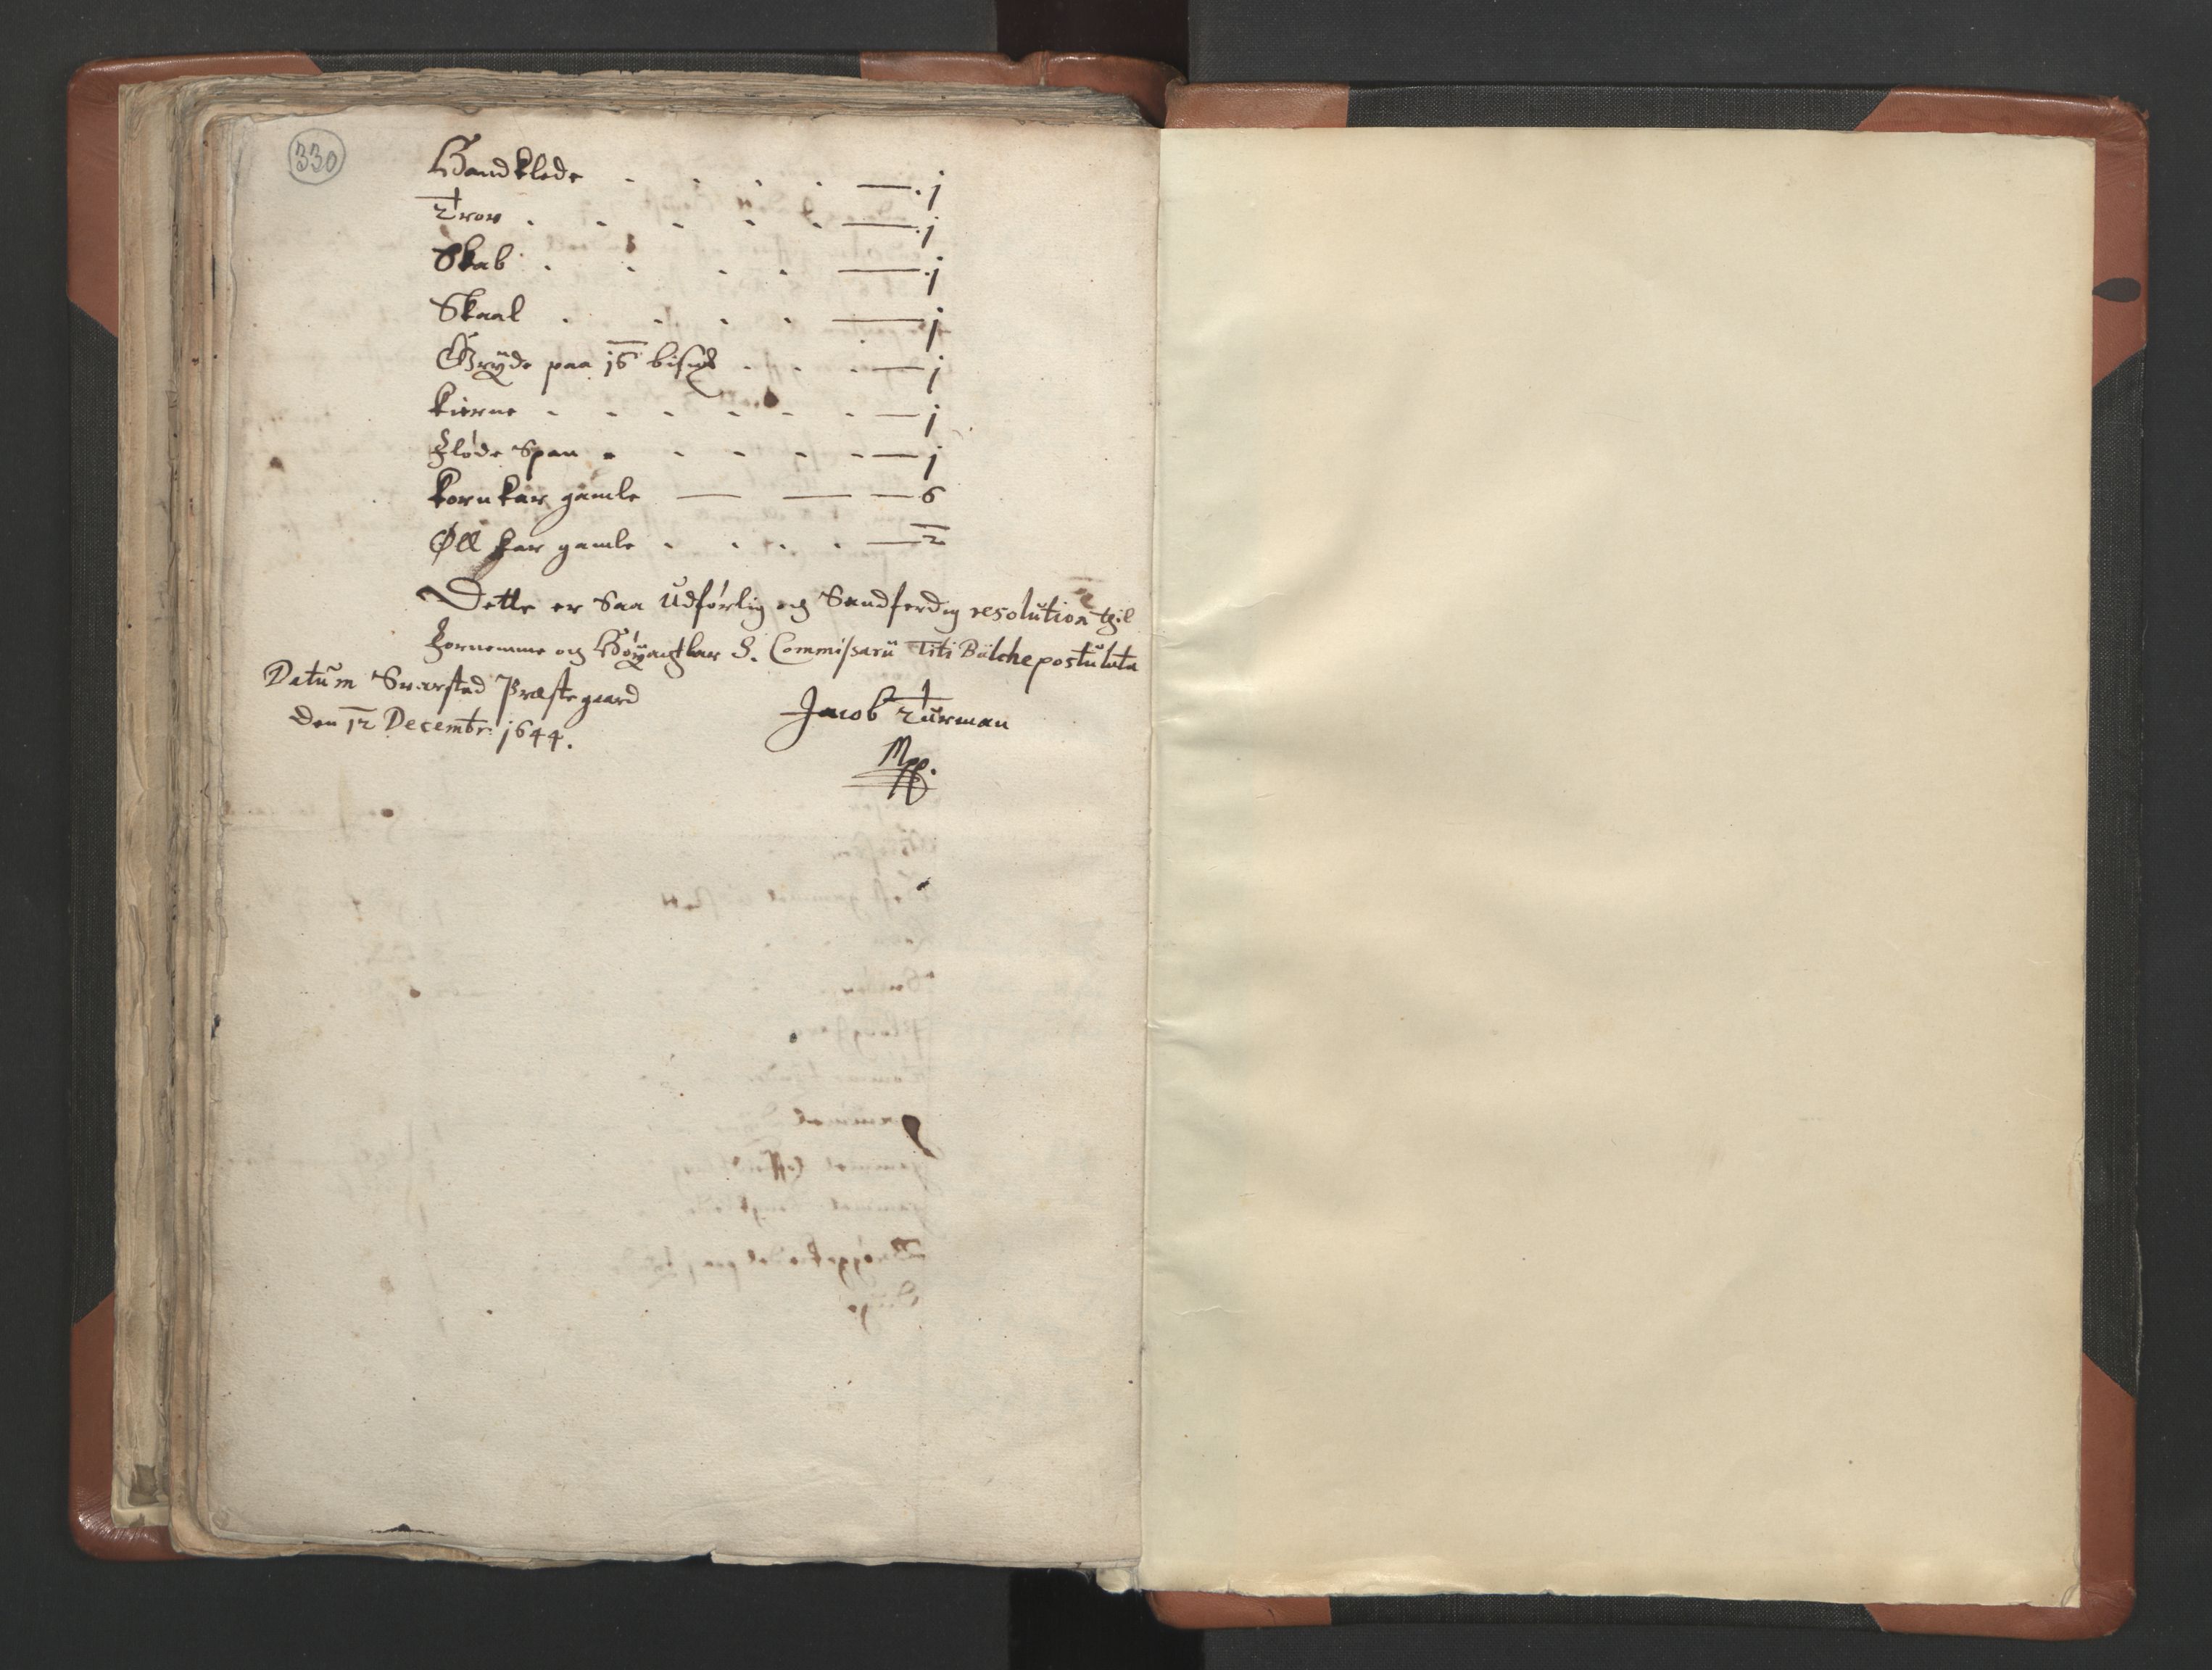 330
Handklede . . . . — . j
Trou . . . . . — . j
Skab . . . . — . j
Skaal . . . . — j
Gryde paa 16 bismd . . . — j
Kierne . . . . . . — j
Fløde Span . . . . . — j
Korn kar gamle — — — 6
Øll kar gamle . . . . — 2
Dette er Saa Udførlig og Sandferdig resolution til
Fornemme og Høyagtbar H. Commissarii Titi Bülche postulata
Datum Suarstad Præstegaard
Den 12 Decembr: 1644.
Jacob Turman
Mpp.